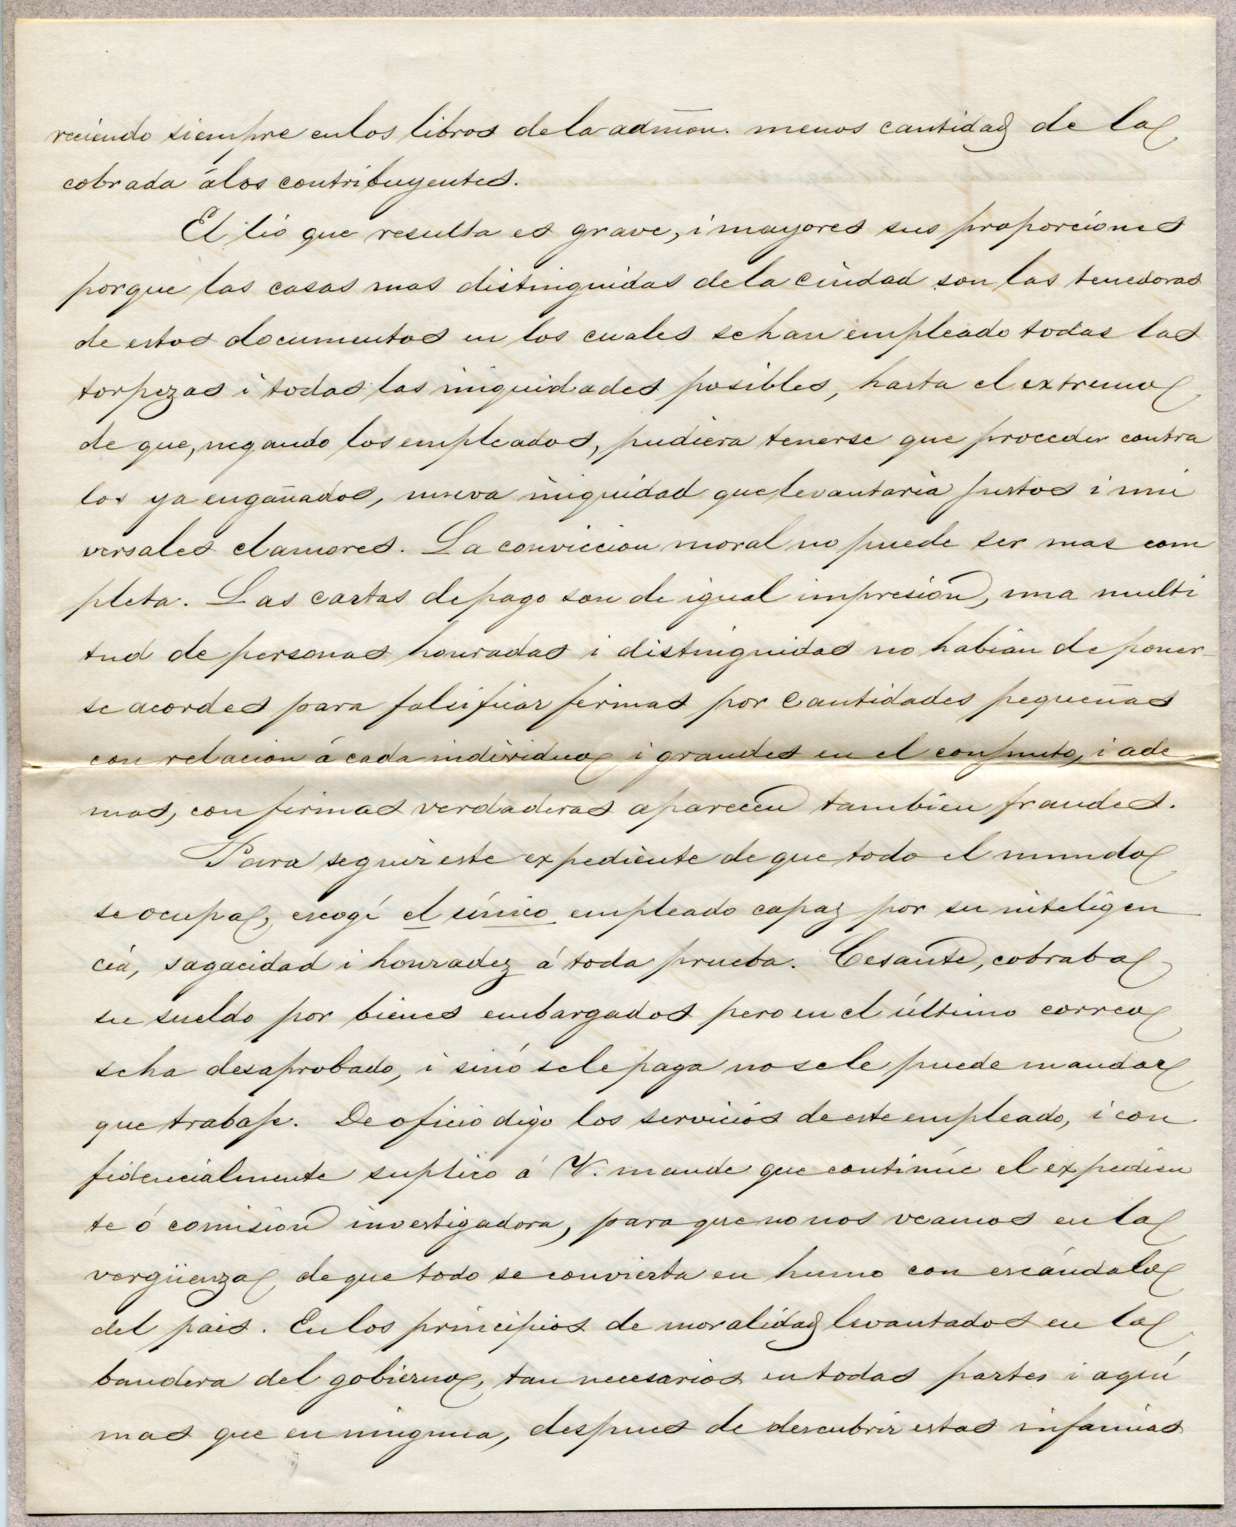 reciendo siempre en los libros de la admōn. menos cantidad de la
cobrada á los contribuyentes.
El lio que resulta es grave, i mayores sus proporciones
porque las casas mas distinguidas de la ciudad son las tenedoras
de estos documentos en los cuales se han empleado todas las
torpezas i todas las iniquidades posibles, hasta el extremo
de que, negando los empleados, pudiera tenerse que proceder contra
los ya engañados, nueva iniquidad que levantaria justos i uni
versales clamores. La conviccion moral no puede ser mas com
pleta. Las cartas de pago son de igual impresion, una multi
tud de personas honradas i distinguidas no habian de poner-
se acordes para falsificar firmas por cantidades pequeñas
con relacion á cada individuo i grandes en el conjunto, i ade
mas, con firmas verdaderas aparecen tambien fraudes.
Para seguir este expediente de que todo el mundo
se ocupa, escogí el único empleado capaz por su inteligen
cia, sagacidad i honradez á toda prueba. Cesante, cobraba
su sueldo por bienes embargados pero en el último correo
se ha desaprobado, i sinó se le paga no se le puede mandar
que trabaje. De oficio digo los servicios de este empleado, i con
fidencialmente suplico á V. mande que continúe el expedien
te ó comision investigadora, para que no nos veamos en la
vergüenza de que todo se convierta en humo con escándalo
del pais. En los principios de moralidad levantados en la
bandera del gobierno, tan necesarios en todas partes i aquí
mas que en ninguna, despues de descubrir estas infamias